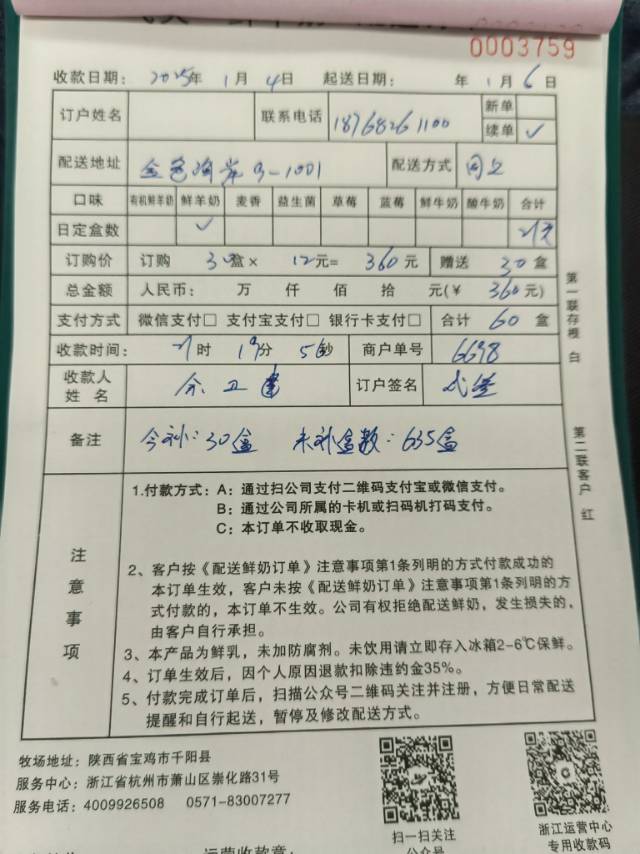 0003759
收款日期： 2025年 1月 4日 起送日期： 年 1月 6日
订户姓名 联系电话 18768261100 新单
续单 ✓
配送地址 3-1001 配送方式 同上
口味 有机鲜羊奶 鲜羊奶 麦香 益生菌 草莓 蓝莓 鲜牛奶 酸牛奶 合计
日定盒数 ✓
订购价 订购 30盒× 12元= 360元 赠送 30盒
总金额 人民币： 万 仟 佰 拾 元(￥ 360元)
支付方式 微信支付□ 支付宝支付□ 银行卡支付□ 合计 60盒
收款时间： 21时 19分 5秒 商户单号 6698
收款人姓名 余卫 订户签名
备注 今补：30盒 未补盒数：635盒
第一联存根 白
第二联客户 红
注意事项
1.付款方式：A：通过扫公司支付二维码支付宝或微信支付。
B：通过公司所属的卡机或扫码机打码支付。
C：本订单不收取现金。
2、客户按《配送鲜奶订单》注意事项第1条列明的方式付款成功的
本订单生效，客户未按《配送鲜奶订单》注意事项第1条列明的方
式付款的，本订单不生效。公司有权拒绝配送鲜奶，发生损失的，
由客户自行承担。
3、本产品为鲜乳，未加防腐剂。未饮用请立即存入冰箱2-6℃保鲜。
4、订单生效后，因个人原因退款扣除违约金35%。
5、付款完成订单后，扫描公众号二维码关注并注册，方便日常配送
提醒和自行起送，暂停及修改配送方式。
牧场地址：陕西省宝鸡市千阳县
服务中心：浙江省杭州市萧山区崇化路31号
服务电话：4009926508 0571-83007277
扫一扫关注
公众号
浙江运营中心
专用收款码
运营收款章：